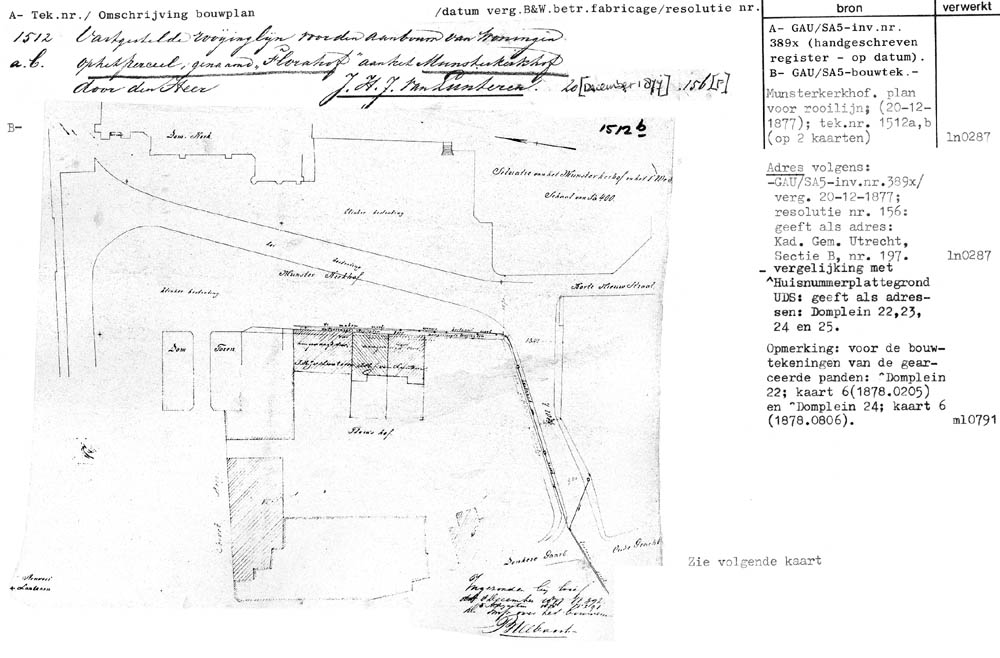 A- Tek.nr./ Omschrijving bouwplan /datum verg.B&W.betr.fabricage/resolutie nr.
bron
verwerkt
1512 Vastgestelde rooyinglijn voor den aanbouw van Woningen
a.b. op het perceel, genaamd, "Florahof" aan het Munsterkerkhof
door den Heer J. H. J. Van Lunteren. 20 [December 1877] .156[5]
A- GAU/SA5-inv.nr.
389x (handgeschreven
register - op datum).
B- GAU/SA5-bouwtek.-
Munsterkerkhof. plan
voor rooilijn; (20-12-
1877); tek.nr. 1512a,b
(op 2 kaarten) ln0287
Adres volgens:
-GAU/SA5-inv.nr.389x/
verg. 20-12-1877;
resolutie nr. 156:
geeft als adres:
Kad. Gem. Utrecht,
Sectie B, nr. 197. ln0287
- vergelijking met
^Huisnummerplattegrond
UDS: geeft als adres-
sen: Domplein 22,23,
24 en 25.
Opmerking: voor de bouw-
tekeningen van de gear-
ceerde panden: ^Domplein
22; kaart 6(1878.0205)
en ^Domplein 24; kaart 6
(1878.0806). ml0791
Zie volgende kaart
B-
1512 b
Dom. Kerk
Situatie van het Munster kerkhof en het
Schaal van
Klinker bestrating
bestrating
Munster Kerkhof
Klinker bestrating
Korte Nieuw Straat
Dom Toren
Flora's hof.
Donkere Gaard
Oude Gracht
Ingezonden bij brief